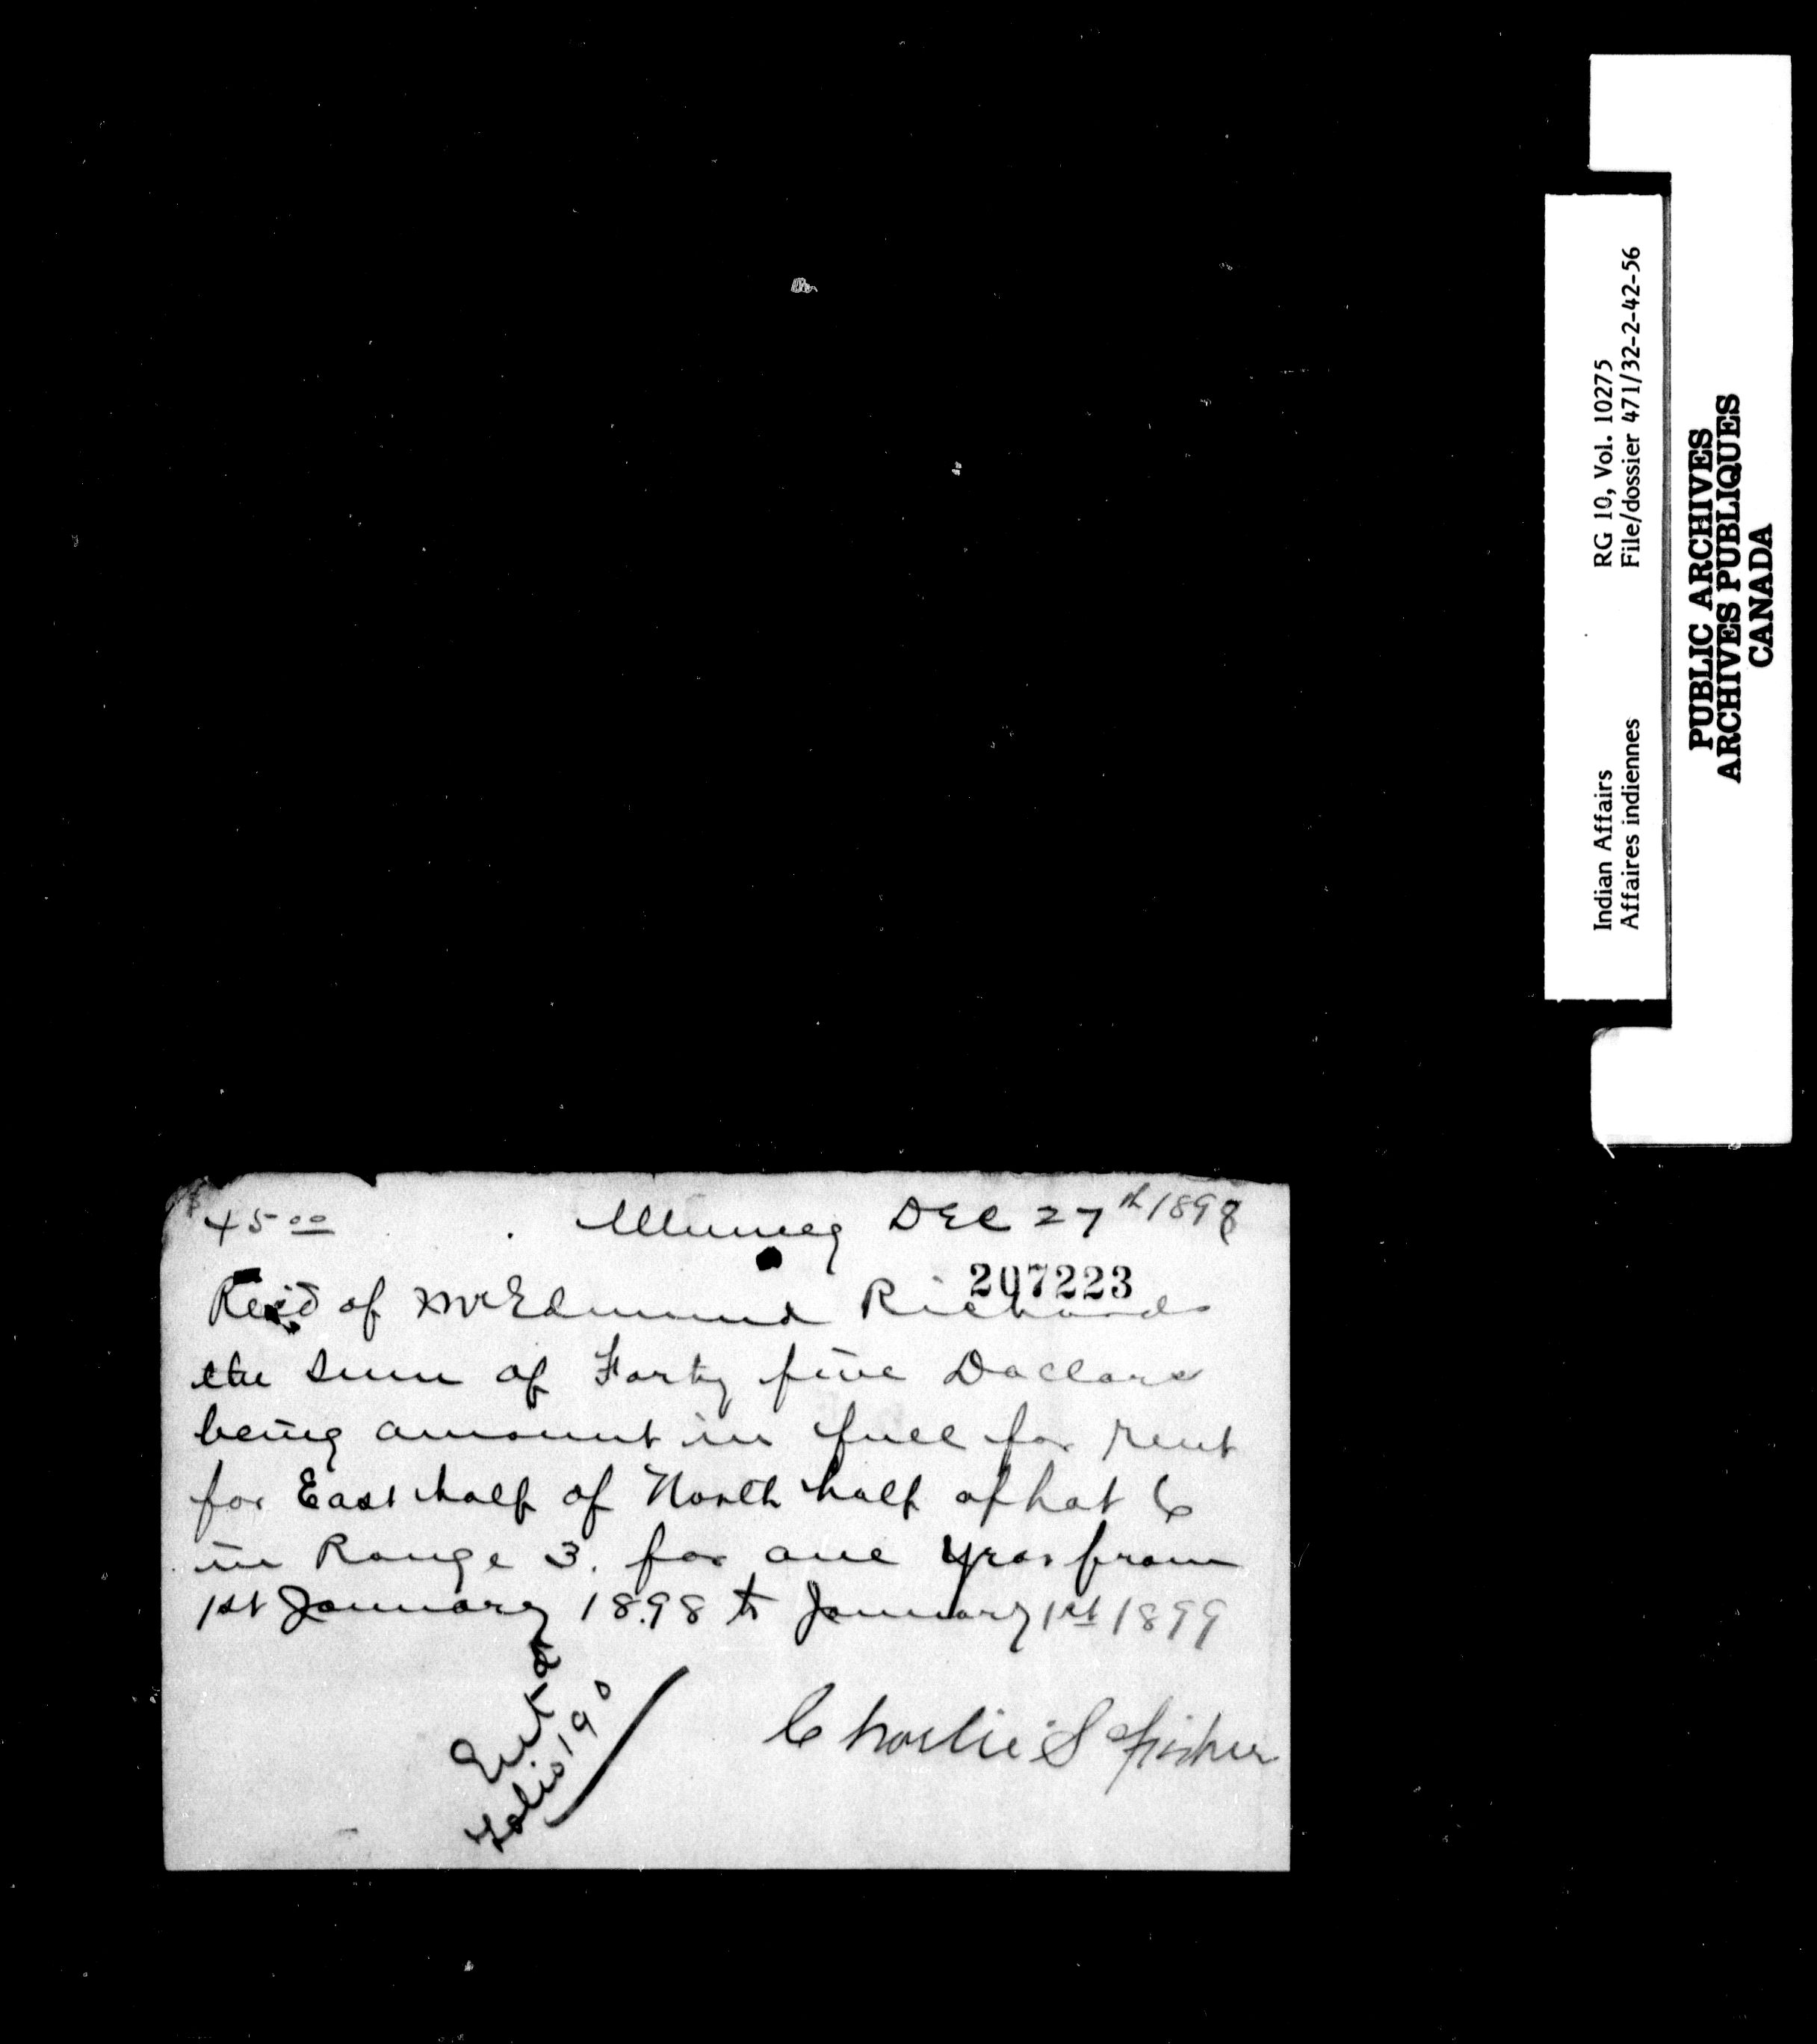 45 00 Muncey DEC 27th 1898
207223
Rec'd of Mr Edmund Richards
the Sum of Forty five Dollars
being amount in full for rent
for East half of North half of Lot 6
in Range 3. for one year from
1st January 1898 to January 1st 1899
Charlie S Fisher
Ent'd
Folio 190
Indian Affairs RG 10, Vol. 10275
Affaires indiennes File/dossier 471/32-2-42-56
PUBLIC ARCHIVES
ARCHIVES PUBLIQUES
CANADA